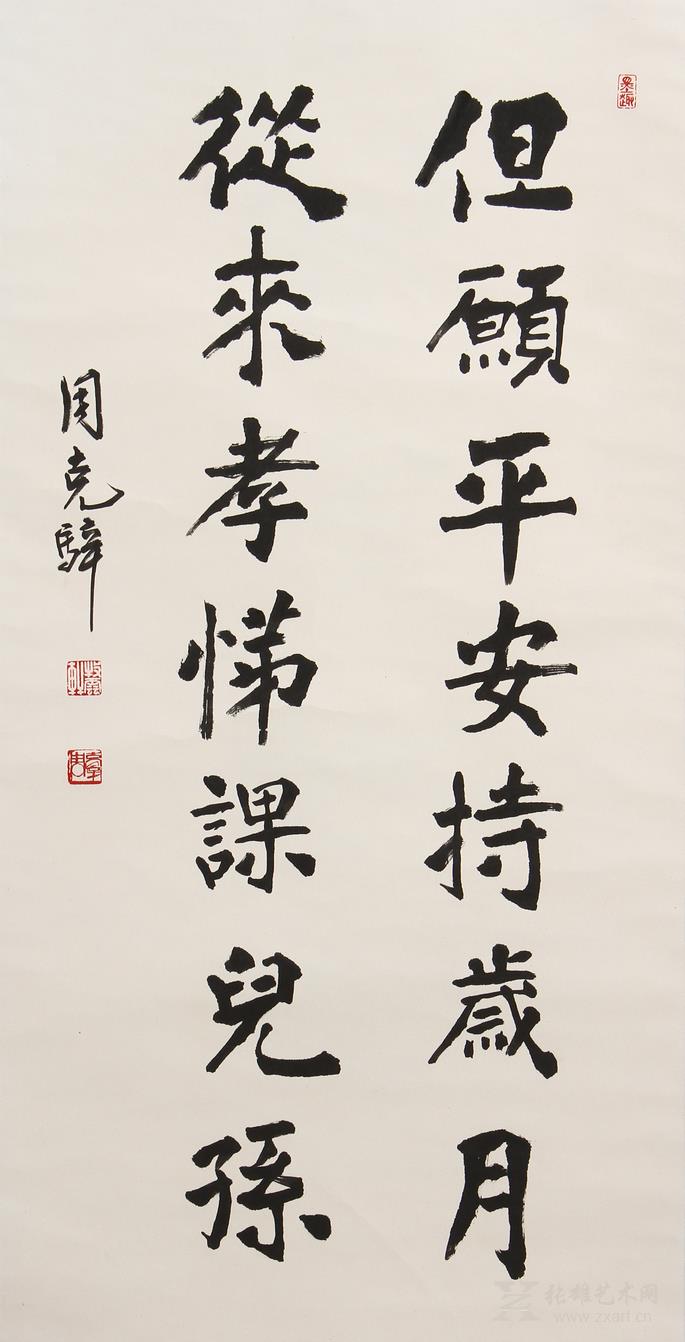 但願平安持歲月
從來孝悌課兒孫
周克
张雄艺术网
www.zxart.cn